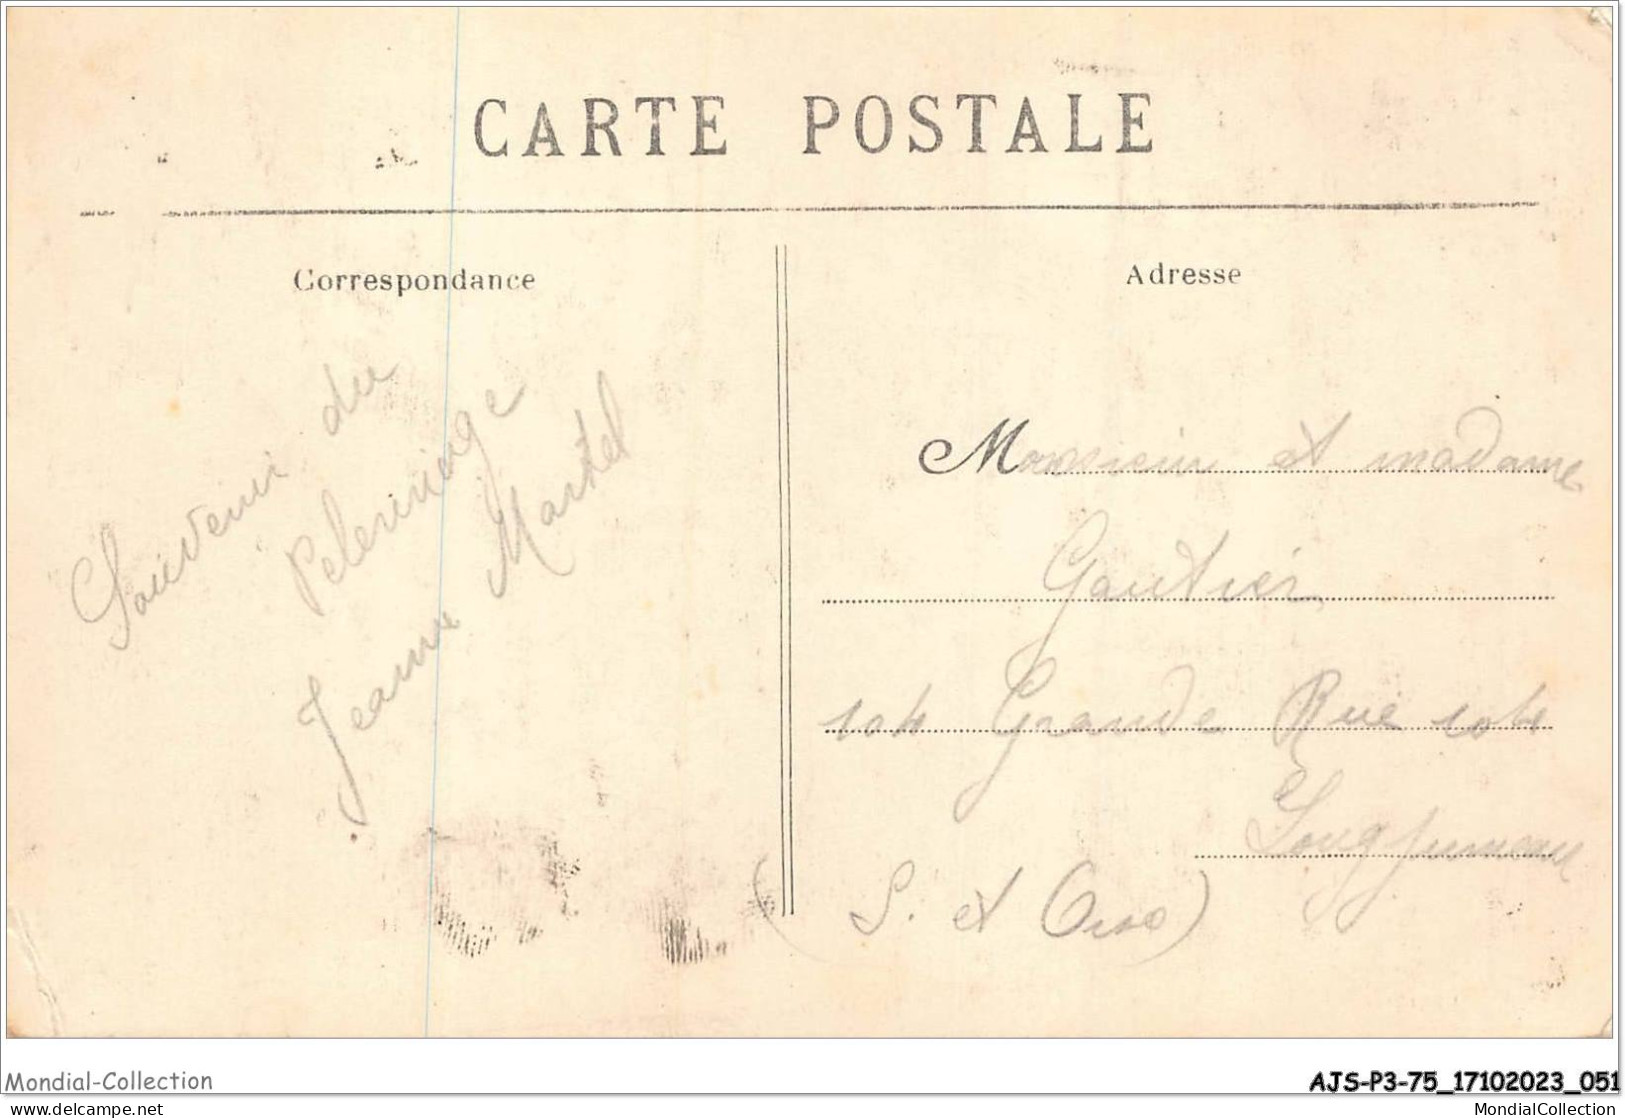 CARTE POSTALE
Correspondance
Adresse
Souvenir du
Pelerinage
Jeanne Martel
Monsieur et madame
Gautier
104 Grande Rue 104
Longjumeau
(S. et Oise)
Mondial-Collection
AJS-P3-75_17102023_051
delcampe.net
MondialCollection